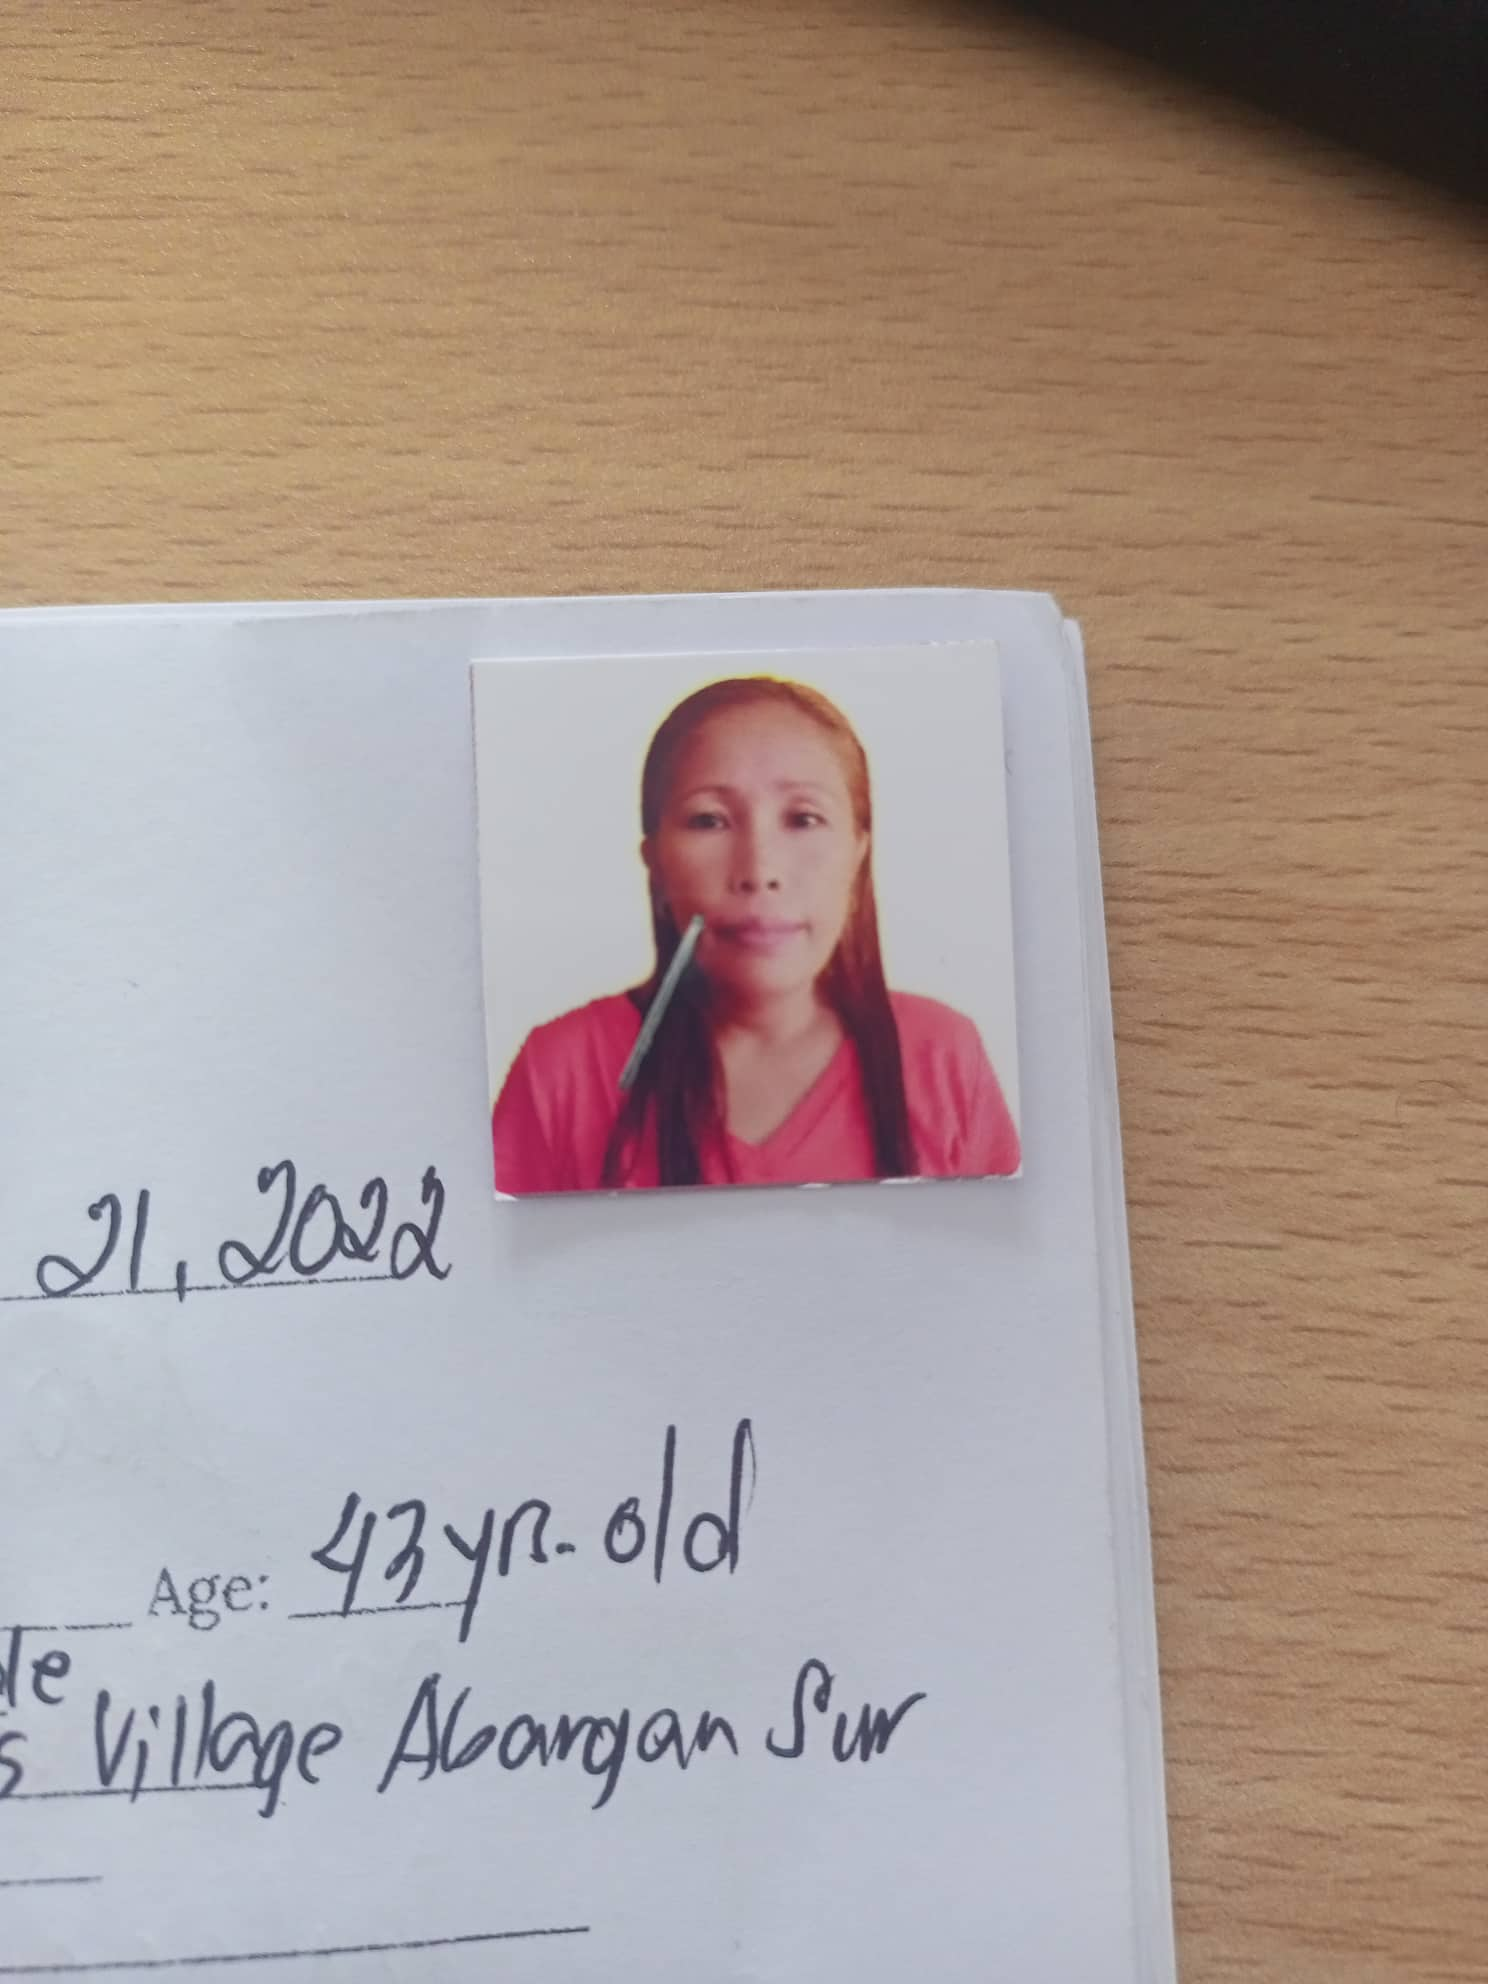 21, 2022
Age: 43 yrs. old
Village Abangan Sur